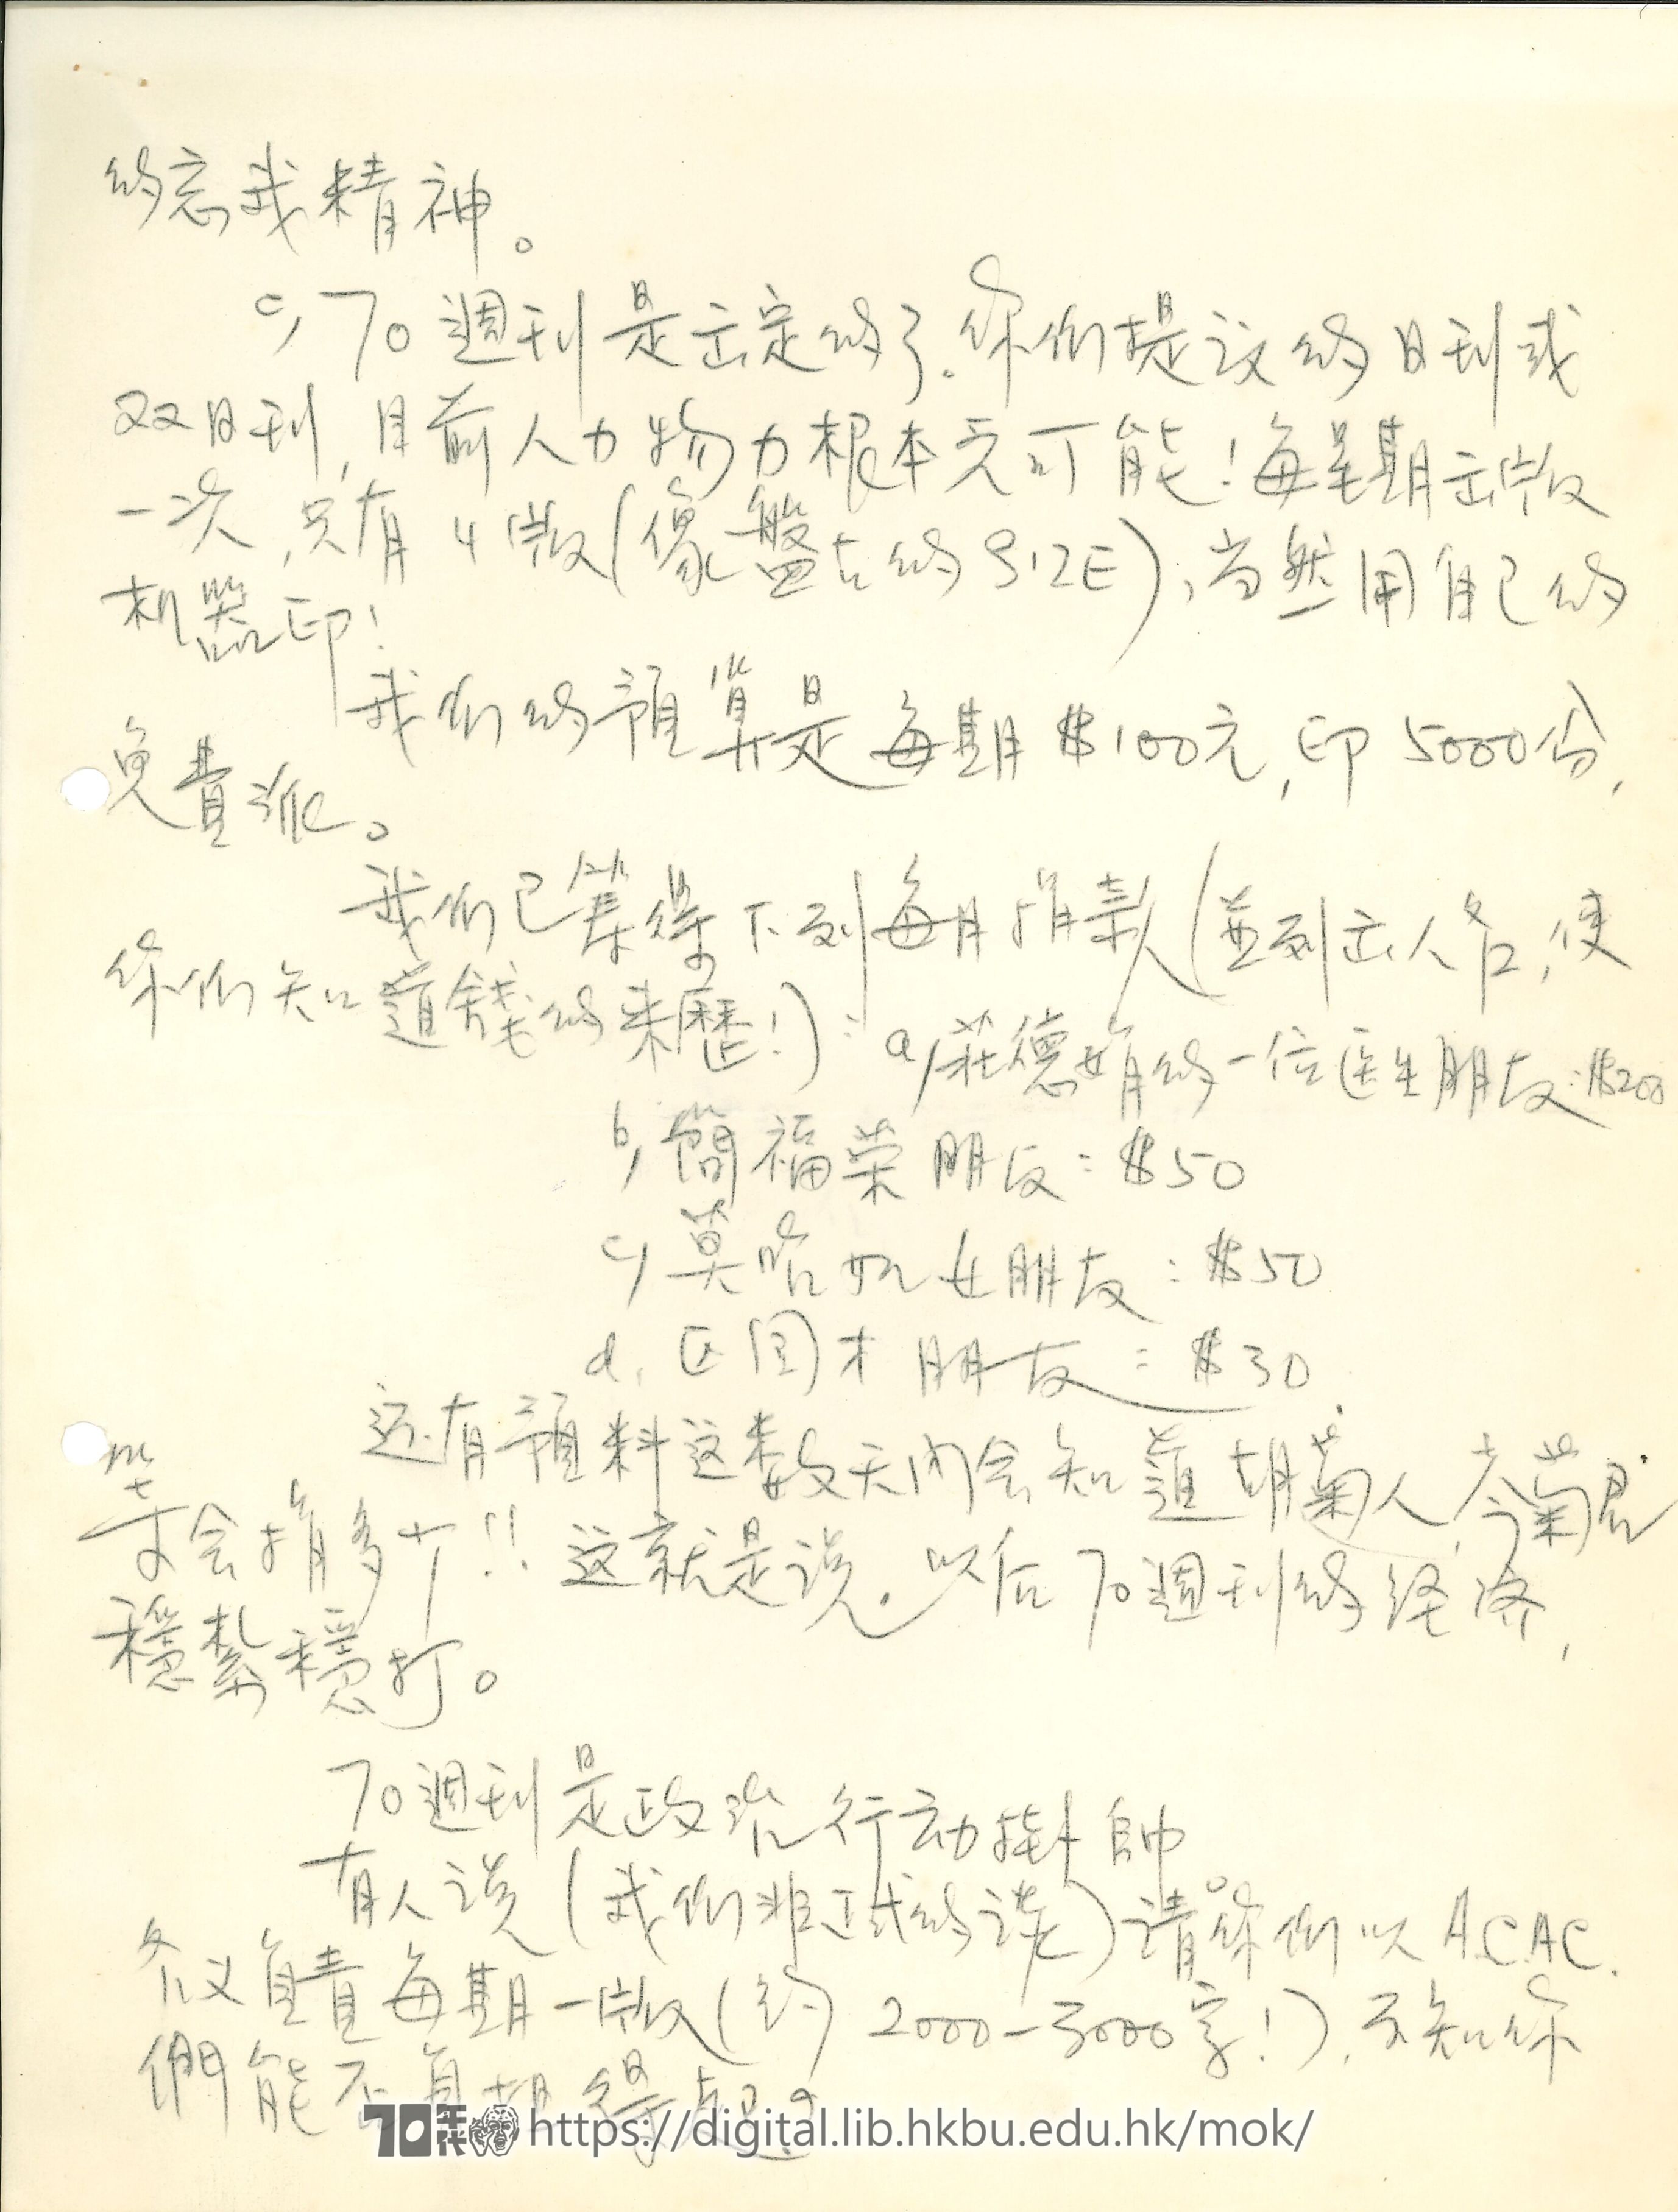 的忘我精神。
c, 70週刊是出定的了.你们提议的日刊或
双日刊,目前人力物力根本无可能!每星期出版
一次,只有4版(像盤古的SIZE),当然用自己的
机器印!
我们的預算是每期$100元,印5000份,
免費派。
我们已筹得下列每月捐款(並列出人名,使
你们知道錢的来歷!):a,莊德娟的一位医生朋友:$200
b,簡福荣朋友:$50
c,莫昭如女朋友:$50
d.区国才朋友:$30.
还有預料这数天内会知道胡菊人,岑菊君
等会捐多少!!这就是说.以后70週刊的经济,
穩紮穩打。
70週刊是政治行动掛帥。
有人说(我们非正式的谈)请你们以A.C.A.C.
名义負責每期一版(约2000-3000字!).不知你
們能否負担得起?
70年代 https://digital.lib.hkbu.edu.hk/mok/